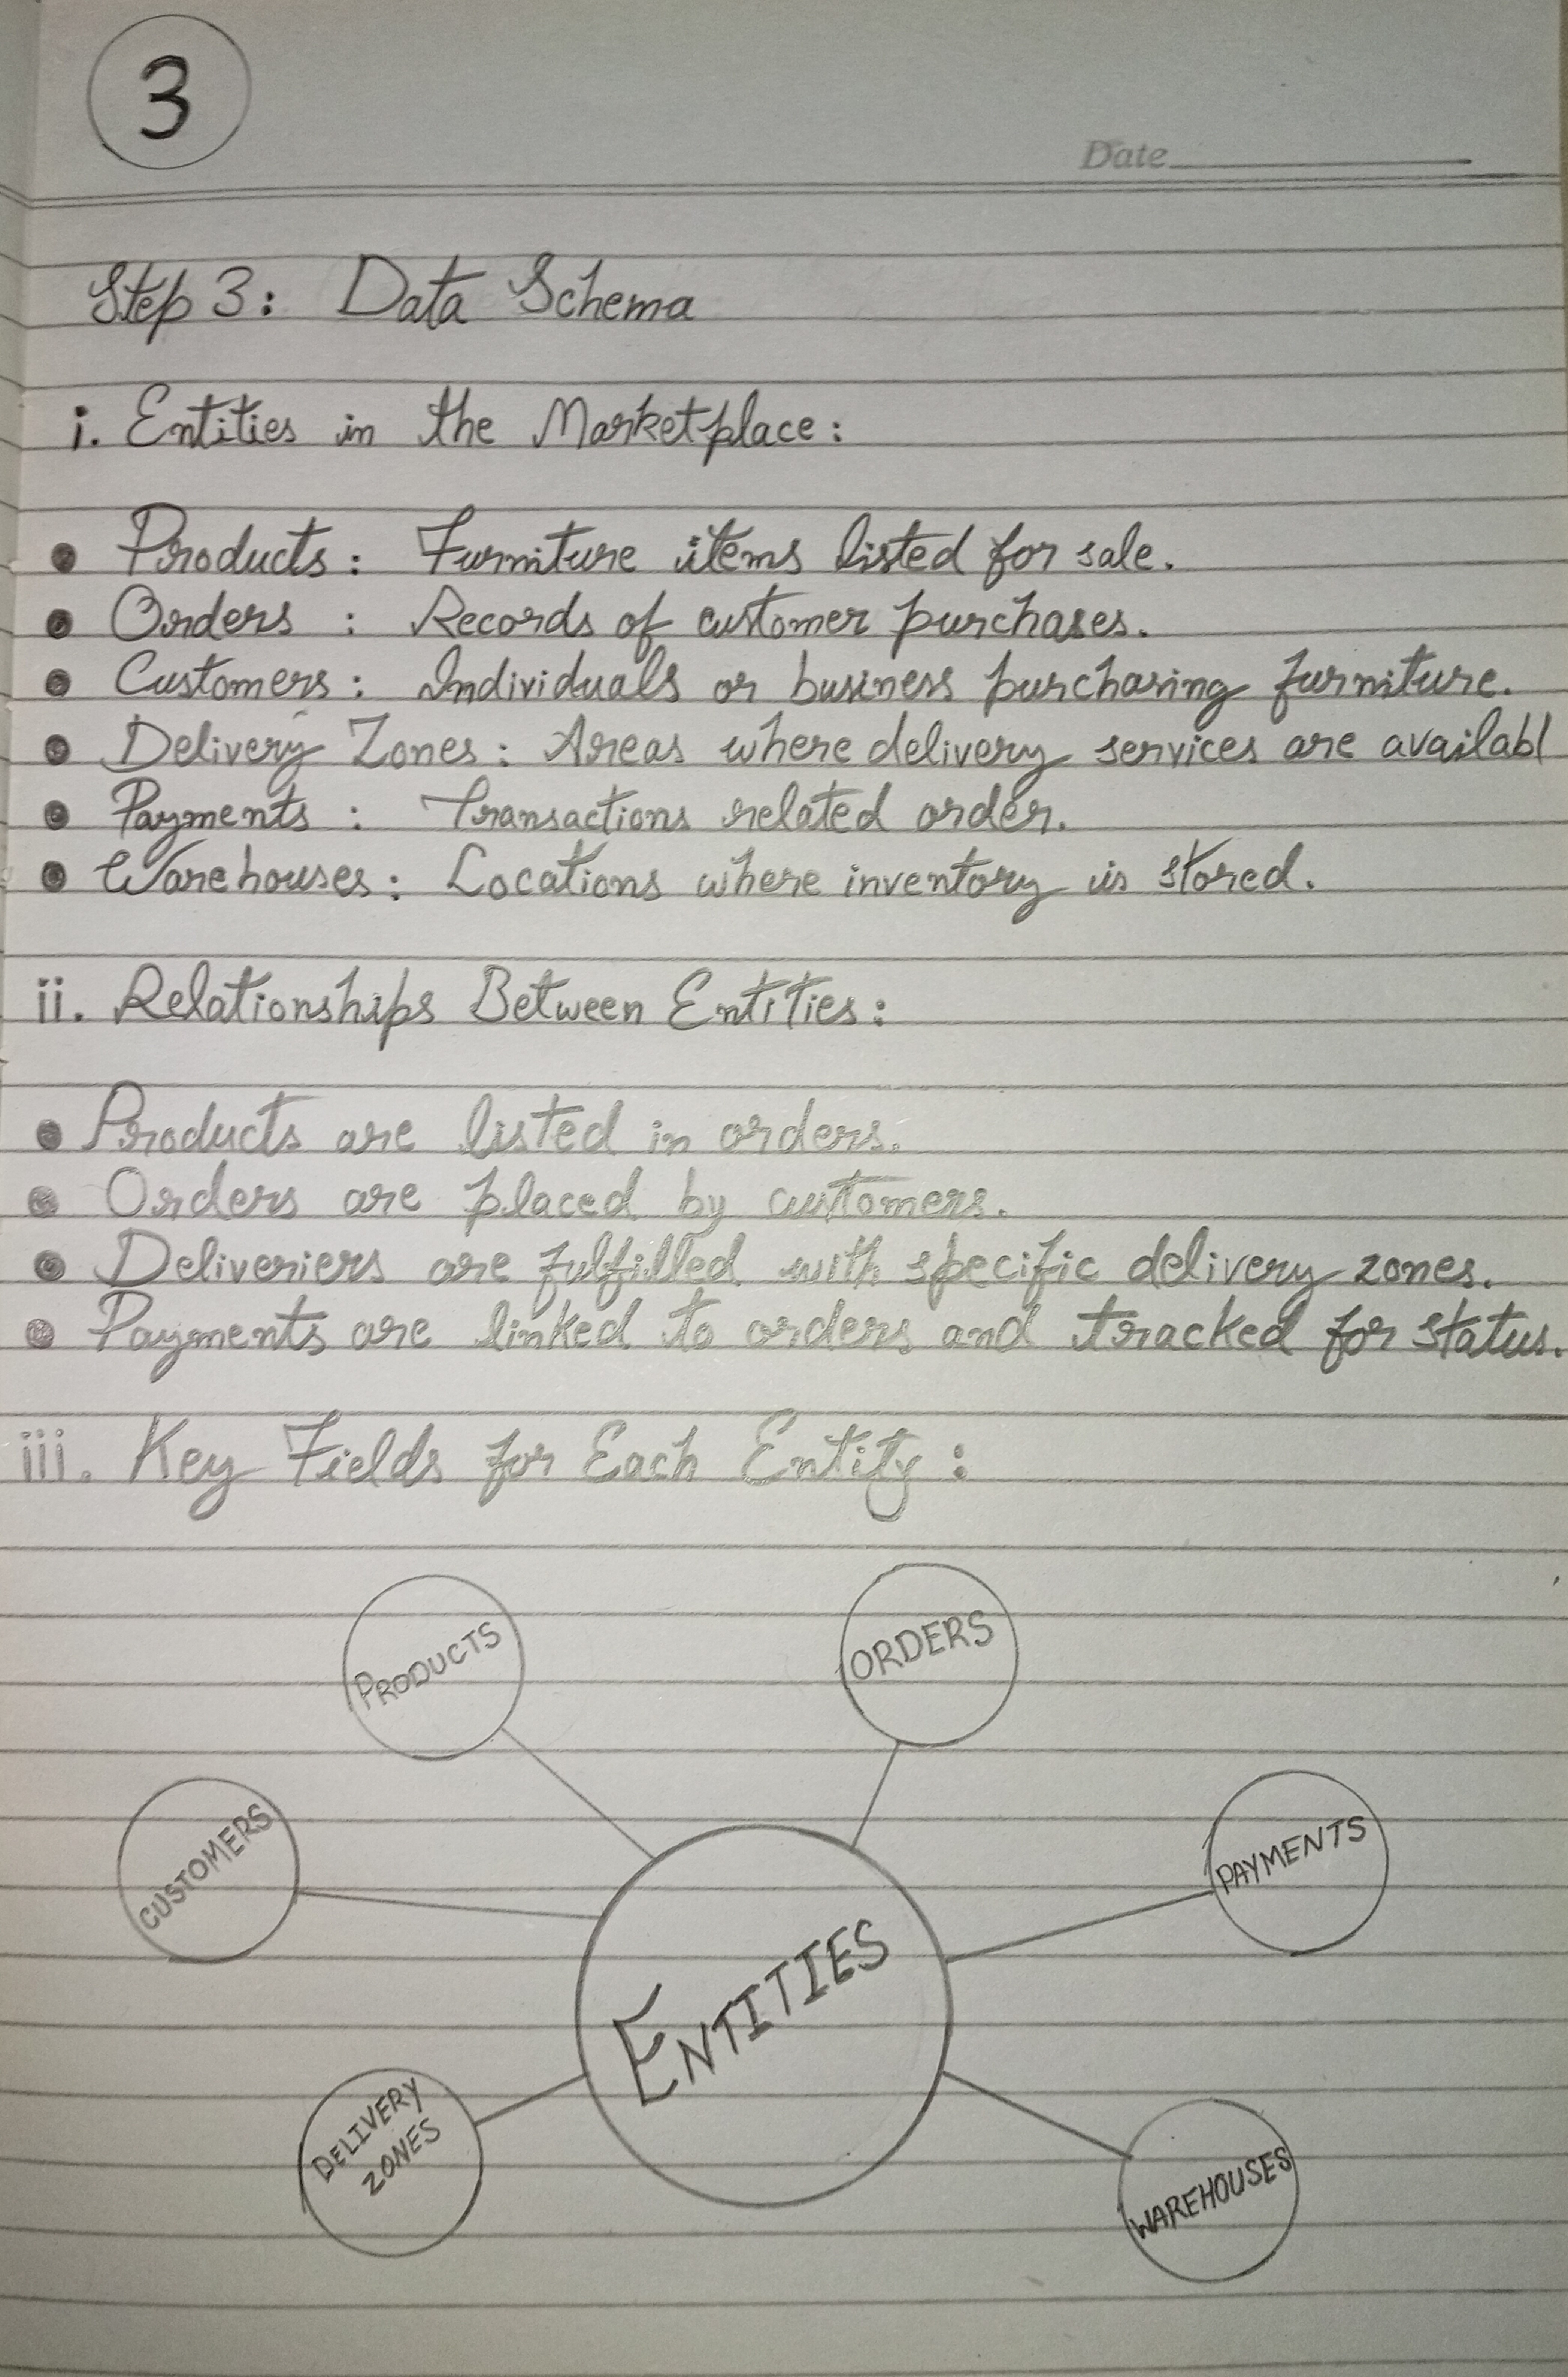 3
Date
Step 3: Data Schema
i. Entities in the Marketplace:
• Products: Furniture items listed for sale.
• Orders : Records of customer purchases.
• Customers: Individuals or business purchasing furniture.
• Delivery Zones: Areas where delivery services are availabl
• Payments : Transactions related order.
• Warehouses: Locations where inventory is stored.
ii. Relationships Between Entities:
• Products are listed in orders.
• Orders are placed by customers.
• Deliveriers are fulfilled with specific delivery zones.
• Payments are linked to orders and tracked for status.
iii. Key Fields for Each Entity:
PRODUCTS
ORDERS
CUSTOMERS
PAYMENTS
ENTITIES
DELIVERY
ZONES
WAREHOUSES